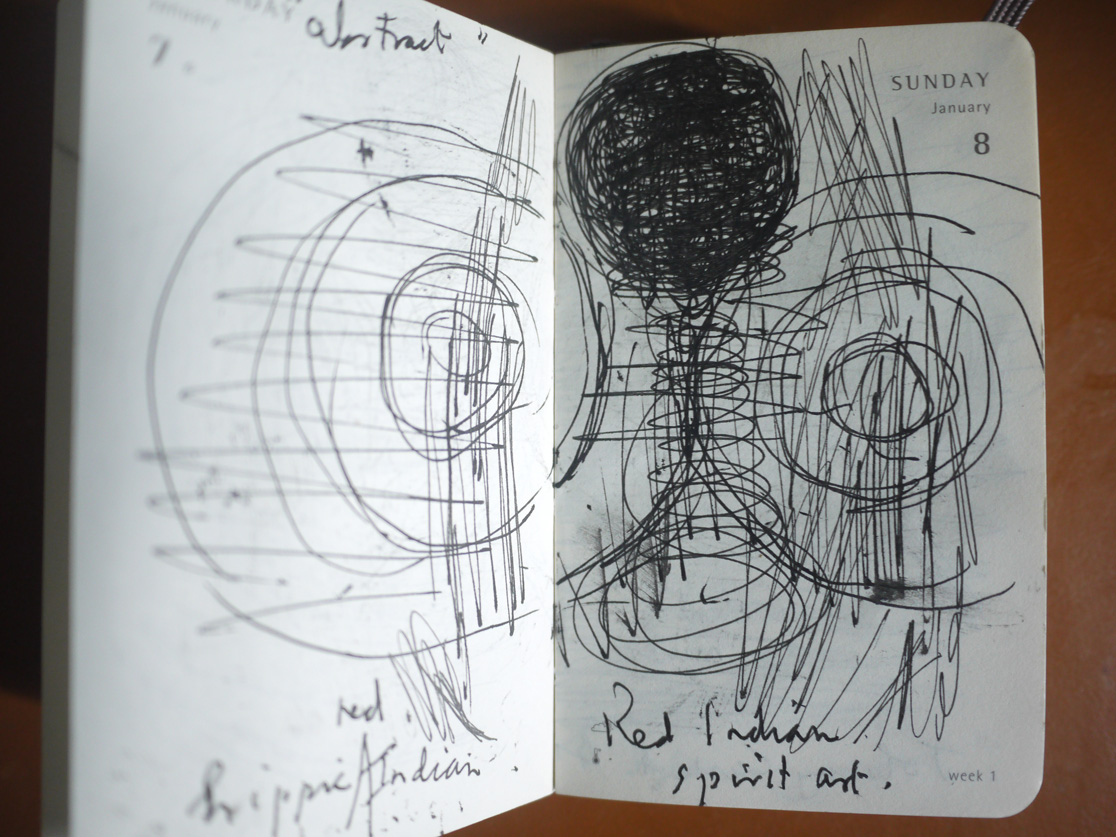 January
7.
abstract "
red.
Indian
SUNDAY
January
8
Red Indian
spirit art.
week 1